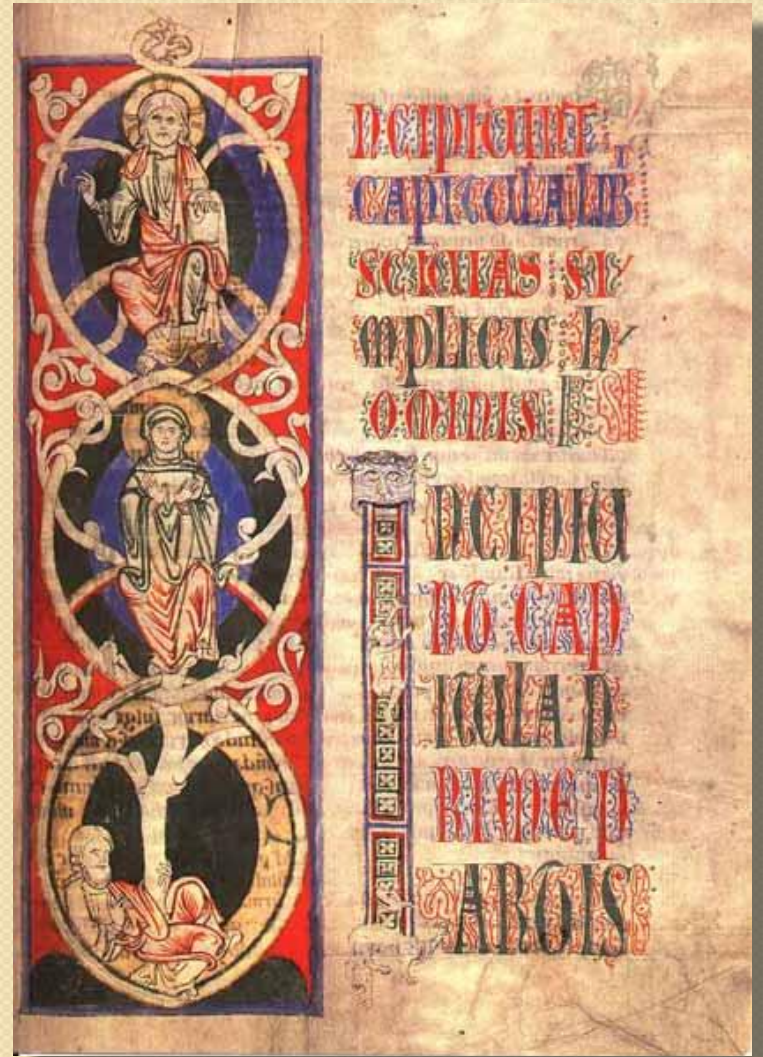 INCIPIUNT
CAPITULA LIB
SCIUIAS SI
MPLICIS H
OMINIS
INCIPIU
NT CAP
ITULA P
RIME P
ARTIS